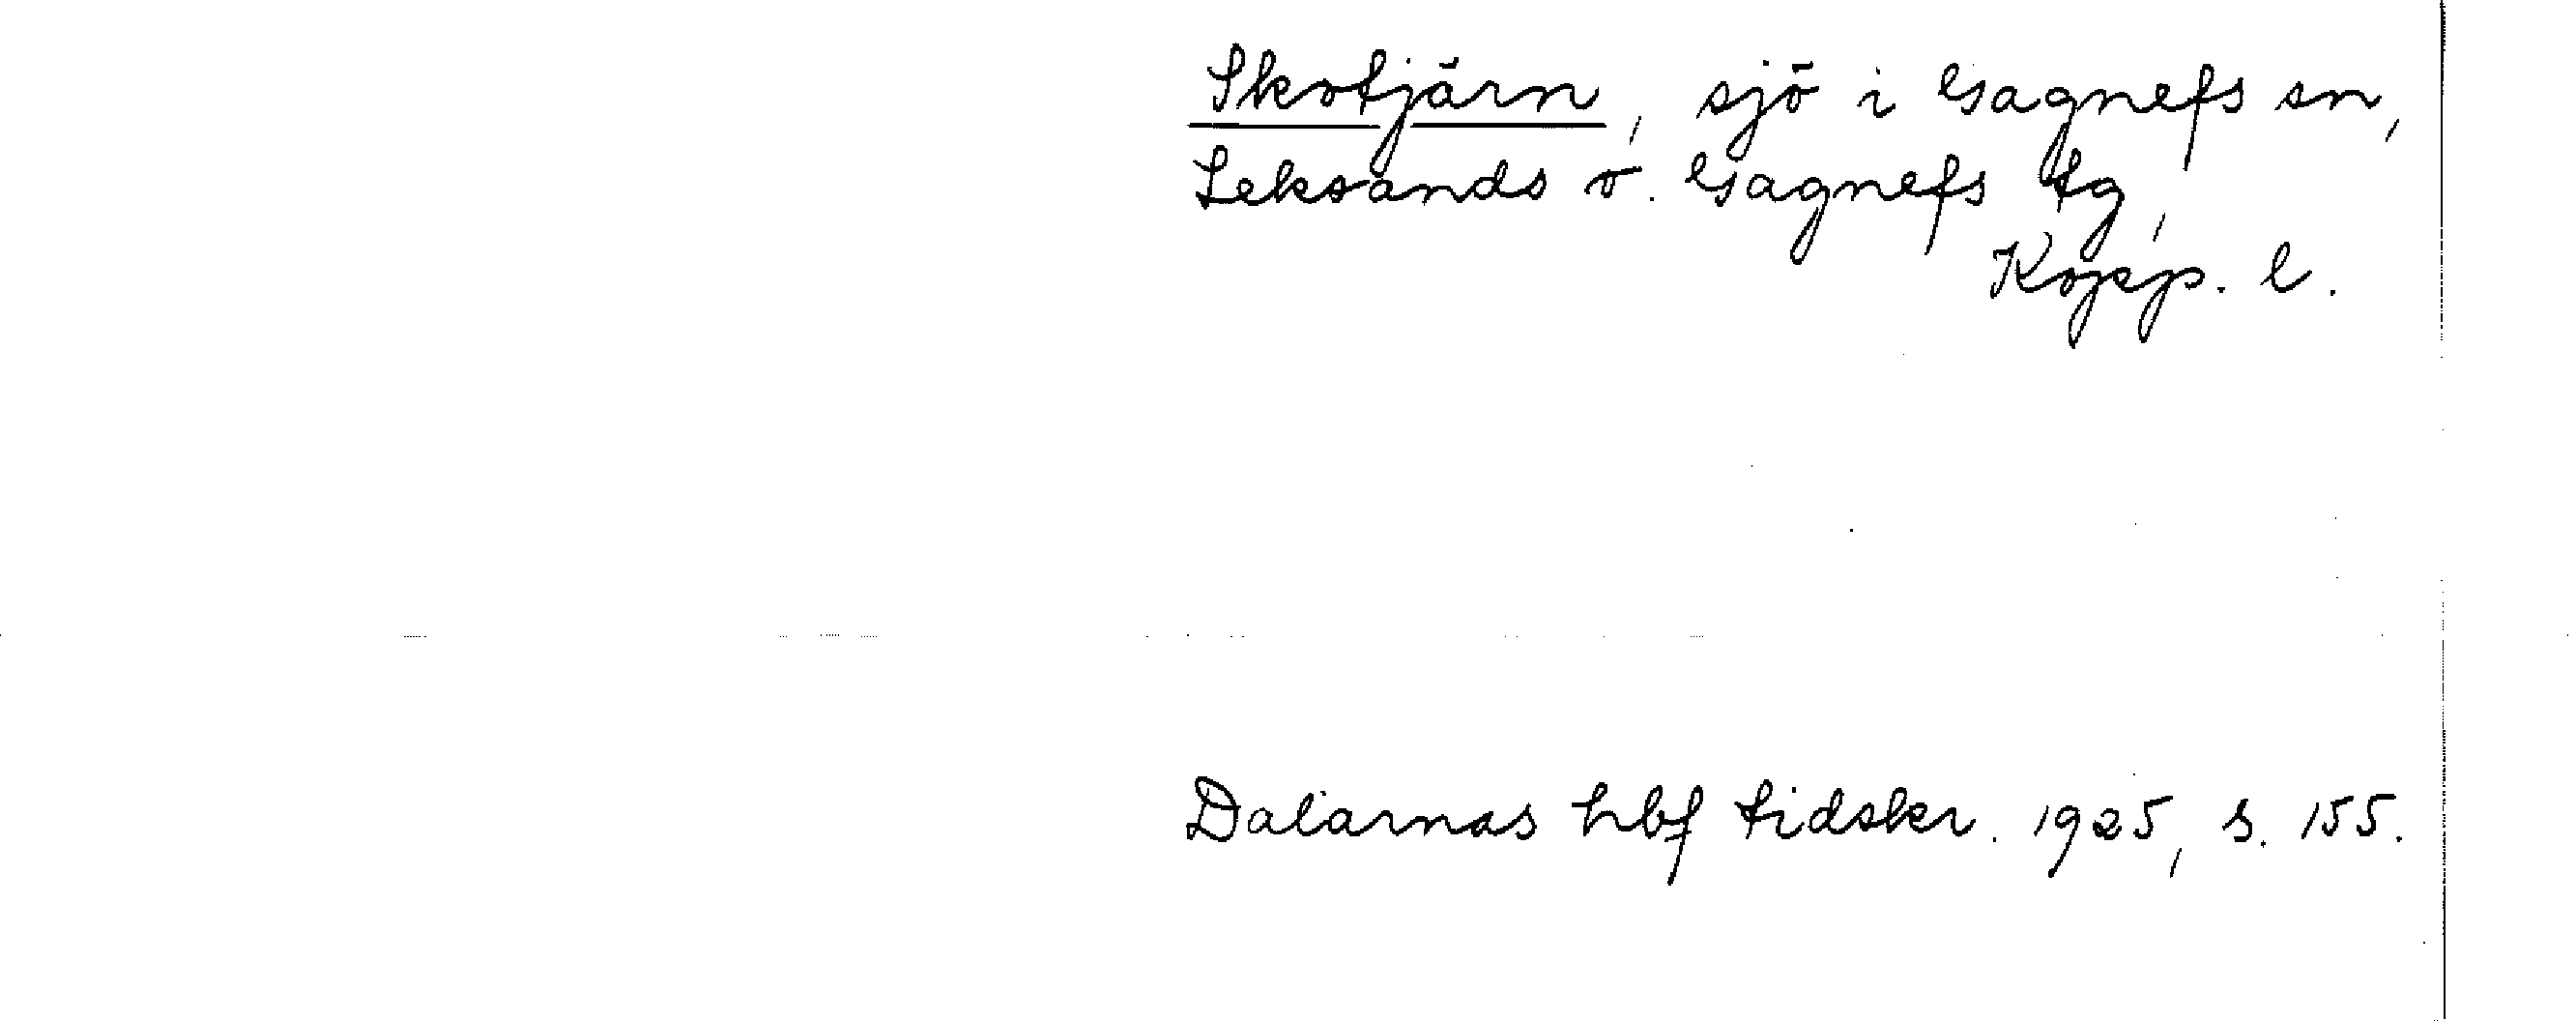 Skotjärn, sjö i Gagnefs sn,
Leksands o. Gagnefs tg,
Kopp. l.
Dalarnas hbf tidskr. 1925, s. 155.